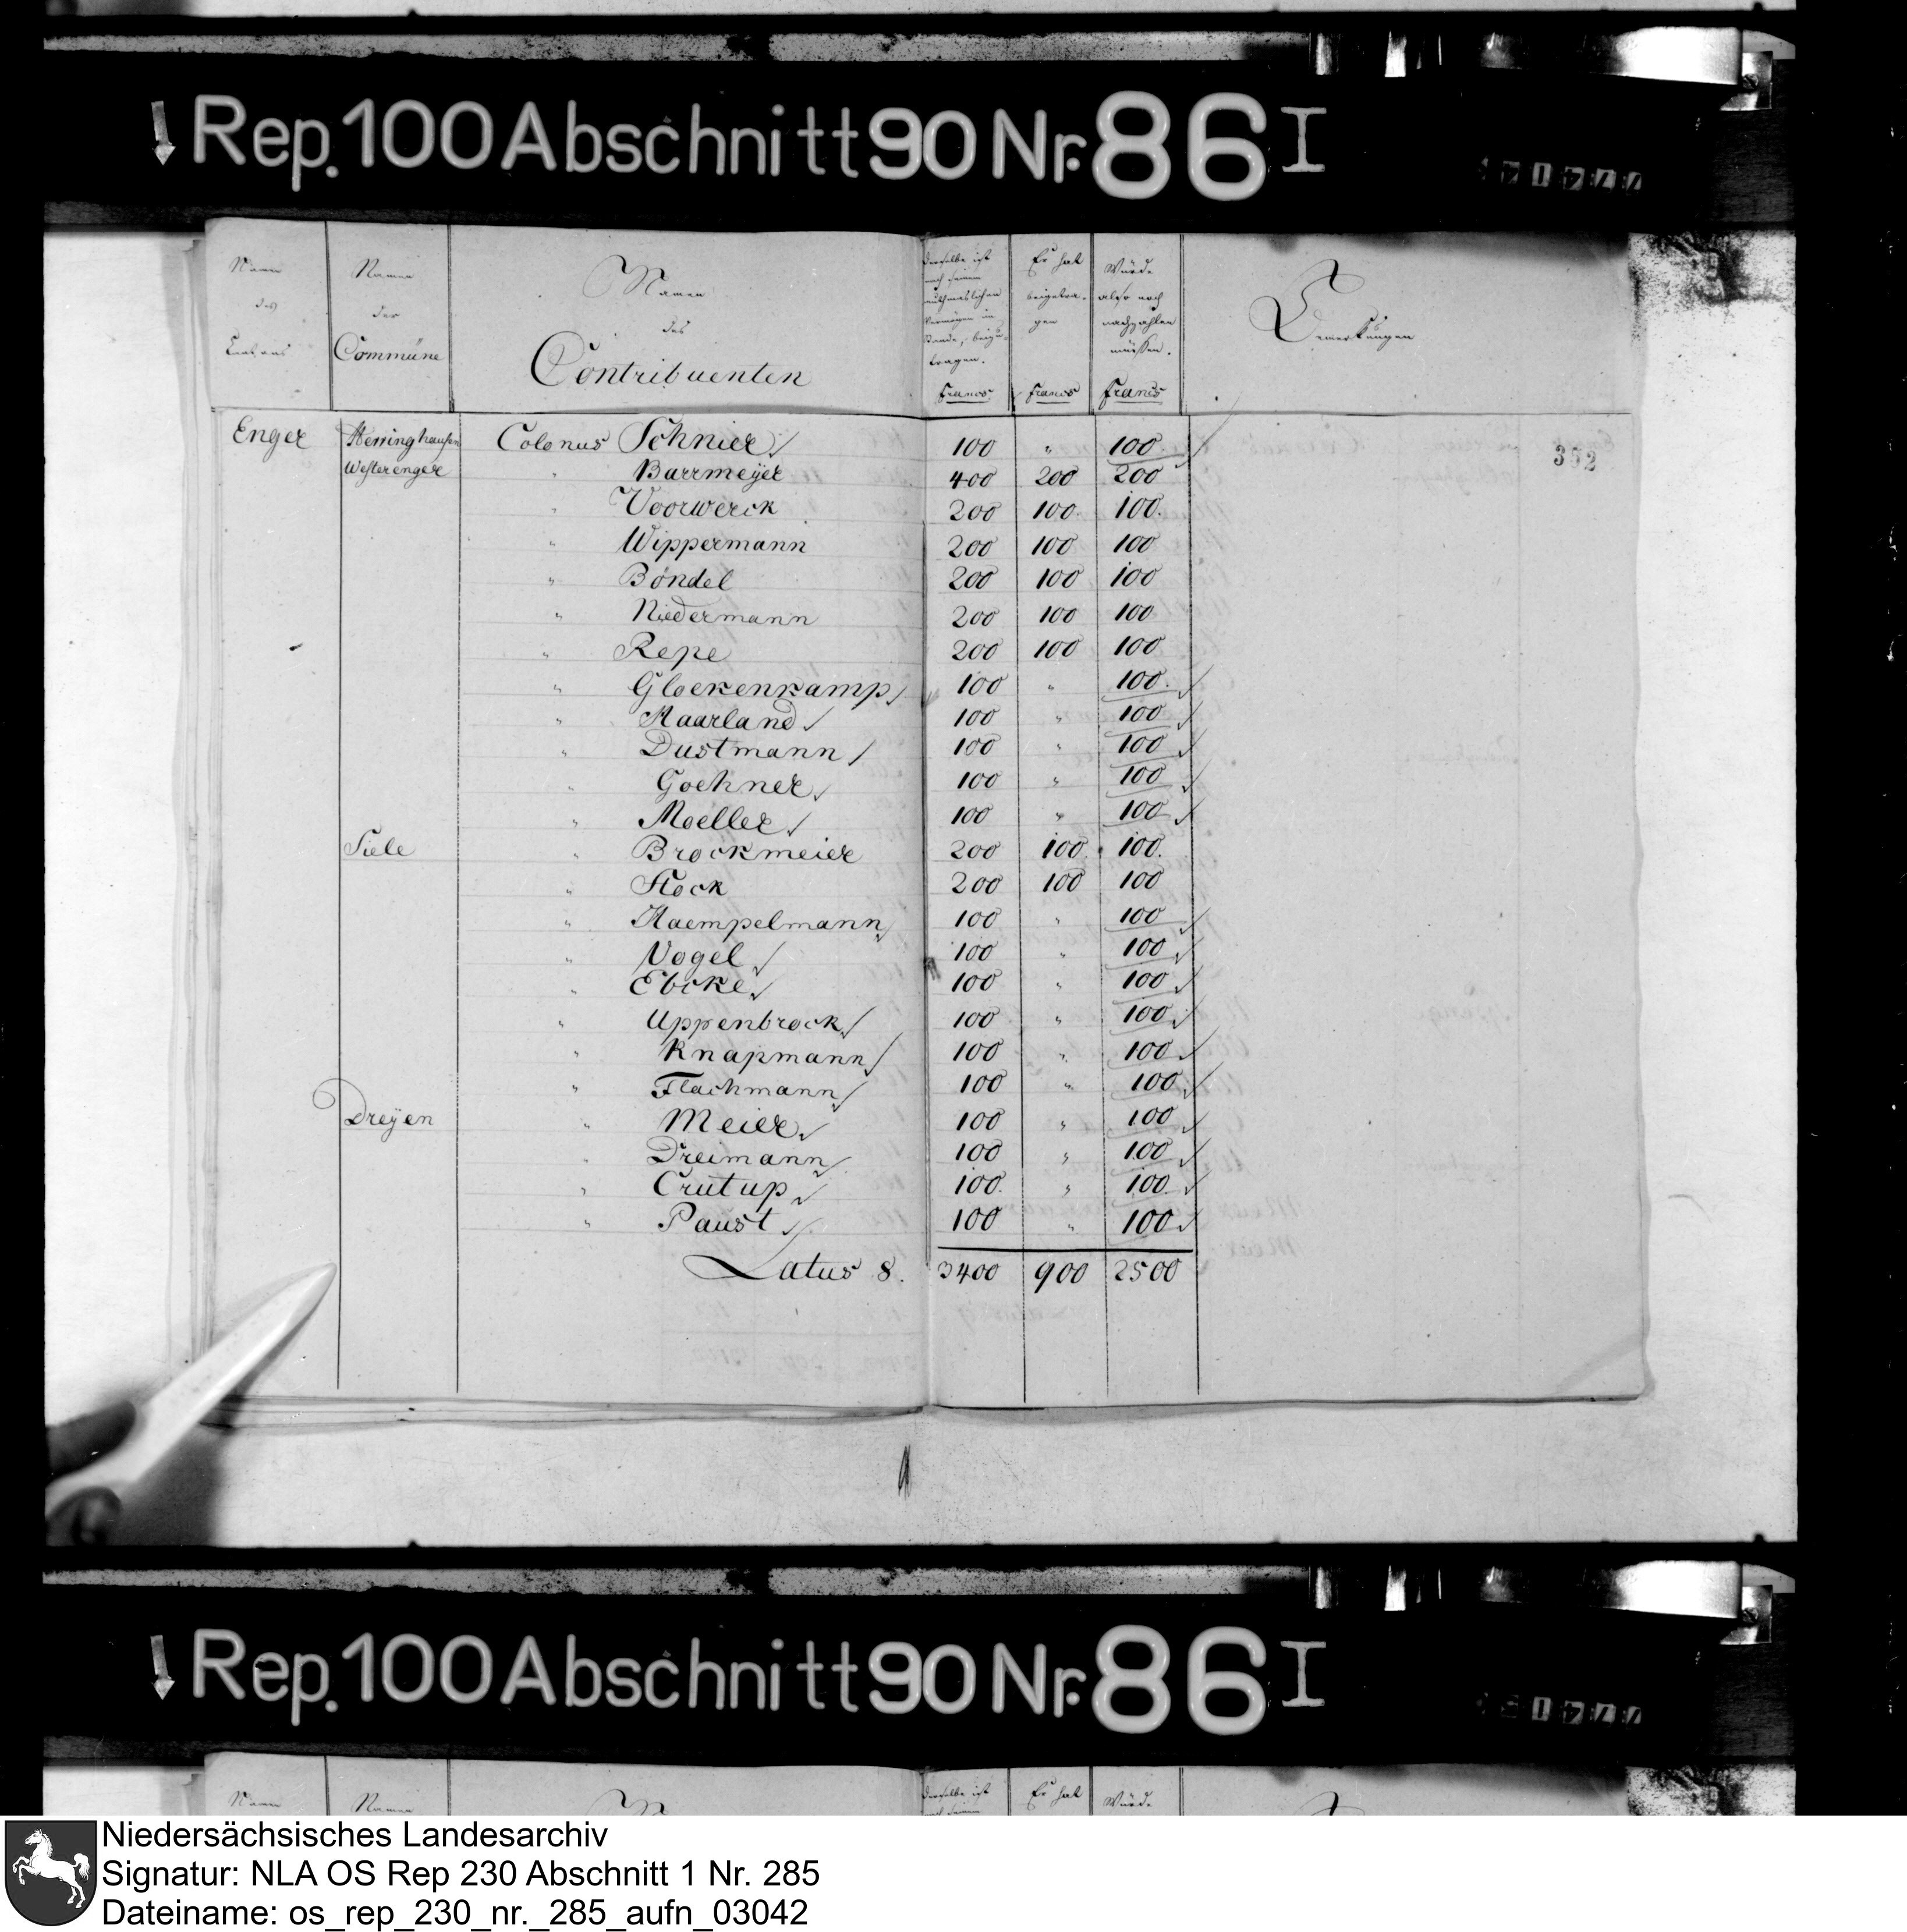 Rep. 100 Abschnitt 90 Nr. 86 I
Namen des Cantons
Namen der Commüne
Namen des Contribuenten
Derselbe ist nach seinem muthmaslichen Vermögen im Stande, beizutragen. Francs
Er hat beigetragen Francs
Würde also noch nachzahlen müssen. Francs
Bemerkungen
352
Enger Herringhausen Colonus Schnier 100 " 100
Westerenger " Barrmeÿer 400 200 200
" Voorwerck 200 100 100.
" Wippermann 200 100 100
" Böndel 200 100 100
" Niedermann 200 100 100
" Repe 200 100 100
" Glockenkamp 100 " 100.
" Haarland 100 " 100
" Dustmann 100 " 100
" Goehner 100 " 100
" Moeller 100 " 100
Siele " Brockmeier 200 100 100.
" Stock 200 100 100
" Haempelmann 100 " 100
" Vogel 100 " 100
" Ebcke 100 " 100
" Uppenbrock 100 " 100
" Knapmann 100 " 100
" Flachmann 100 " 100
Dreÿen " Meier 100 " 100
" Dreimann 100 " 100
" Crutup 100. " 100
" Paust 100 " 100
Latus 8. 3400 900 2500
Rep. 100 Abschnitt 90 Nr. 86 I
Namen Namen N
Derselbe ist Er hat Würde
Niedersächsisches Landesarchiv
Signatur: NLA OS Rep 230 Abschnitt 1 Nr. 285
Dateiname: os_rep_230_nr._285_aufn_03042